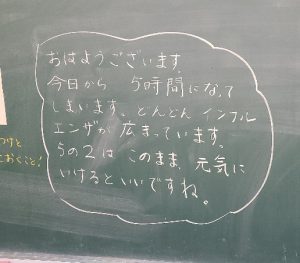 おはようございます。
今日から 5時間になって
しまいます。どんどん インフル
エンザが 広まっています。
5の2は このまま、元気に
いけるといいですね。
おくこと!